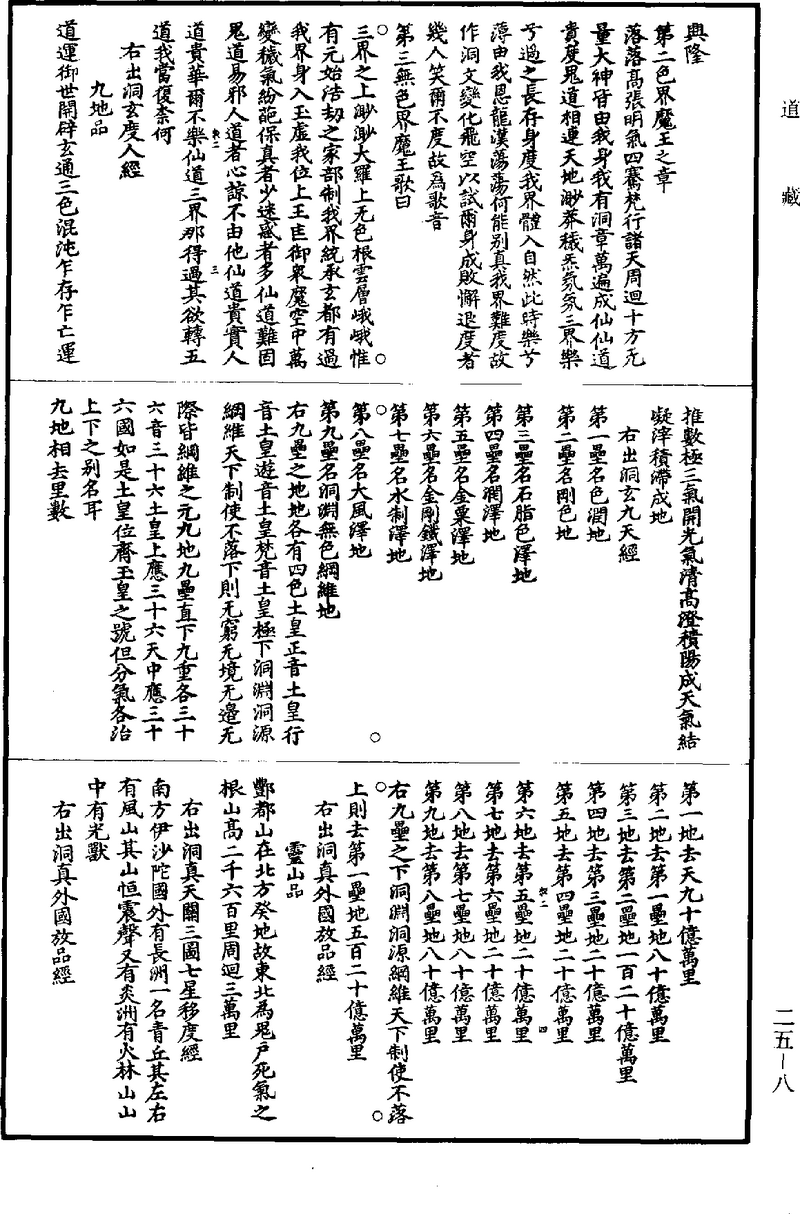 道藏
興隆
第二色界魔王之章
落落高張明氣四騫梵行諸天周迴十方无
量大神皆由我身我有洞章萬遍成仙仙道
貴度鬼道相連天地眇莽穢炁氛氛三界樂
兮過之長存身度我界體入自然此時樂兮
薄由我恩龍漢蕩蕩何能别真我界難度故
作洞文變化飛空以試爾身成敗懈退度者
幾人笑爾不度故爲歌音
第三無色界魔王歌曰
三界之上眇眇大羅上无色根雲層峨峨惟
有元始浩劫之家部制我界統承玄都有過
我界身入玉虛我位上王匡御衆魔空中萬
變穢氣紛葩保真者少迷惑者多仙道難固
鬼道易邪人道者心諒不由他仙道貴實人
道貴華爾不樂仙道三界那得過其欲轉五
道我當復柰何
右出洞玄度人經
九地品
道運御世開辟玄通三色混沌乍存乍亡運
推數極三氣開光氣清高澄積陽成天氣結
凝滓積滯成地
右出洞玄九天經
第一壘名色潤地
第二壘名剛色地
第三壘名石脂色澤地
第四壘名潤澤地
第五壘名金粟澤地
第六壘名金剛鐵澤地
第七壘名水制澤地
第八壘名大風澤地
第九壘名洞淵無色綱維地
右九壘之地地各有四色土皇正音土皇行
音土皇遊音土皇梵音土皇極下洞淵洞源
綱維天下制使不落下則无窮无境无邉无
際皆綱維之元九地九壘直下九重各三十
六音三十六土皇上應三十六天中應三十
六國如是土皇位齊玉皇之號但分氣各治
上下之别名耳
九地相去里數
第一地去天九十億萬里
第二地去第一壘地八十億萬里
第三地去第二壘地一百二十億萬里
第四地去第三壘地二十億萬里
第五地去第四壘地二十億萬里
第六地去第五壘地二十億萬里
第七地去第六壘地二十億萬里
第八地去第七壘地八十億萬里
第九地去第八壘地八十億萬里
右九壘之下洞淵洞源綱維天下制使不落
上則去第一壘地五百二十億萬里
右出洞真外國放品經
靈山品
酆都山在北方癸地故東北爲鬼户死氣之
根山高二千六百里周迴三萬里
右出洞真天關三圖七星移度經
南方伊沙陀國外有長洲一名青丘其左右
有風山其山恒震聲又有炎洲有火林山山
中有光獸
右出洞真外國放品經
二五-八